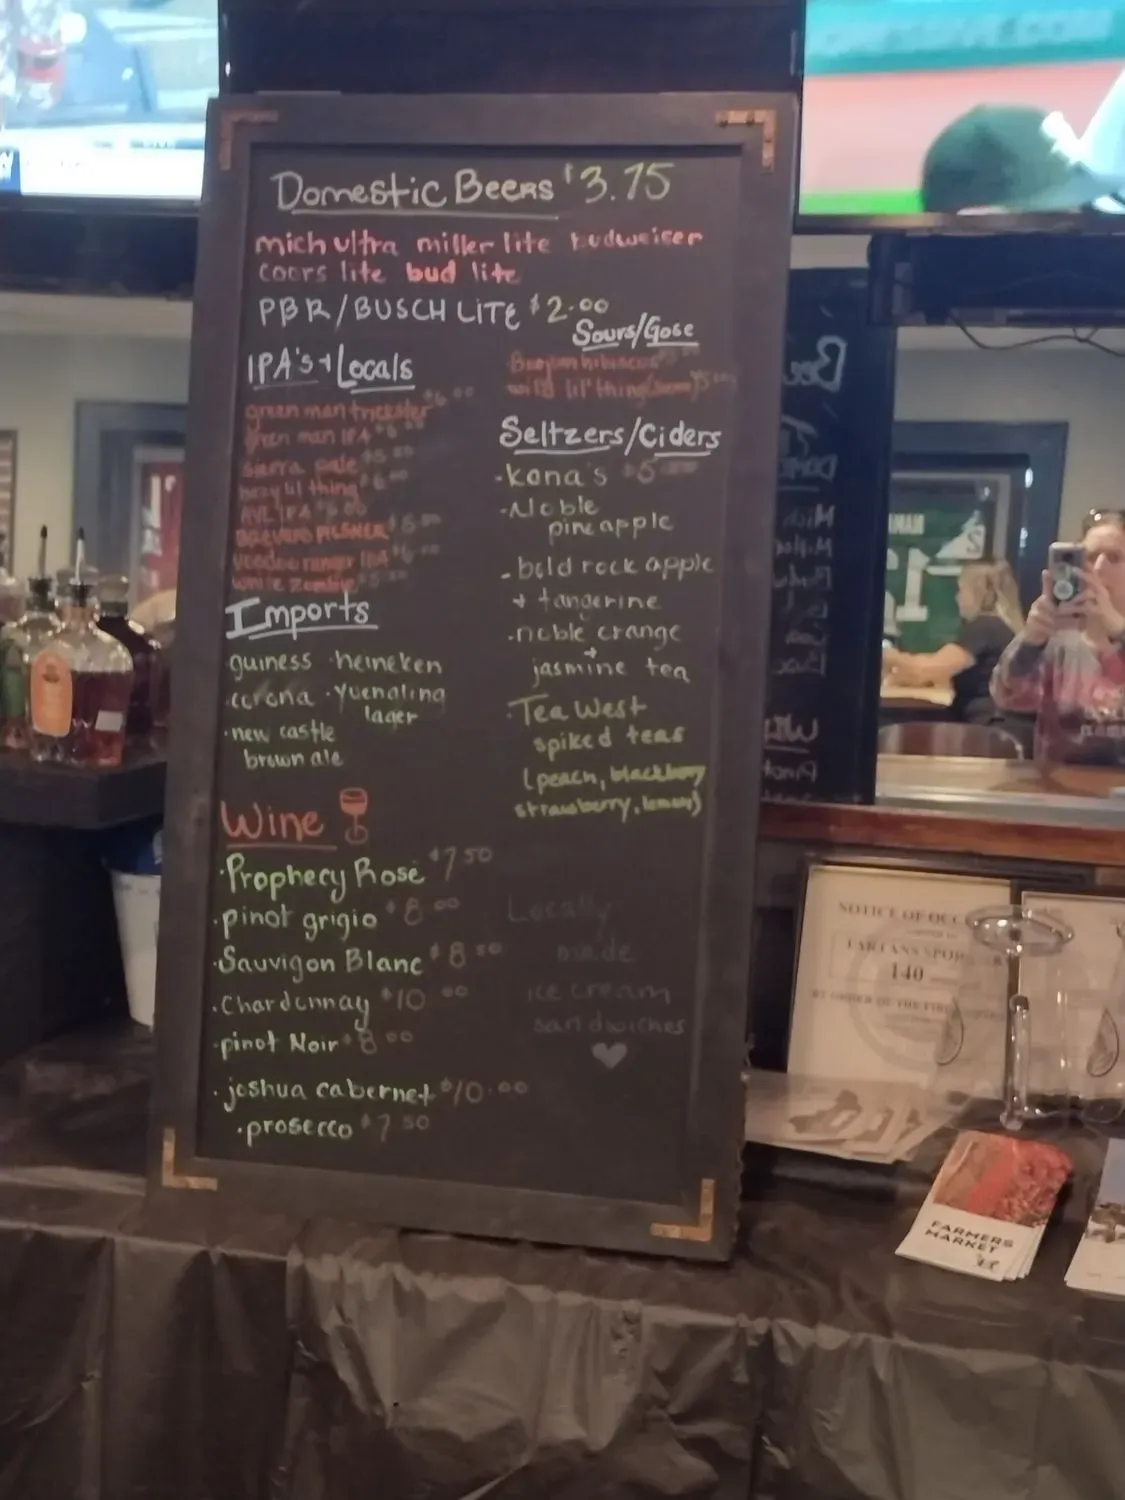 Domestic Beers $3.75
mich ultra miller lite budweiser
coors lite bud lite
PBR/BUSCH LiTE $2.00
Sours/Gose
hibiscus
wild lil' thing
IPA's + Locals
green man trickster $6.00
green man IPA $6.00
sierra pale $5.00
hazy lil thing $6.00
AVL IPA $6.00
PILSNER $5.00
voodoo ranger IPA $6.00
white zombie $5.00
Seltzers/Ciders
·kona's $5.00
·Noble
pineapple
-bold rock apple
+ tangerine
·noble orange
+
jasmine tea
·Tea West
spiked teas
(peach, blackberry
strawberry, lemon)
Imports
·guiness ·heineken
·corona ·yuengling
lager
·new castle
brown ale
Wine
·Prophecy Rosé $7.50
·pinot grigio $8.00
·Sauvigon Blanc $8.50
·Chardonnay $10.00
·pinot Noir $8.00
·joshua cabernet $10.00
·prosecco $7.50
Locally
made
ice cream
sandwiches
NOTICE OF OCC
TARTANS SPOR
140
FARMERS
MARKET